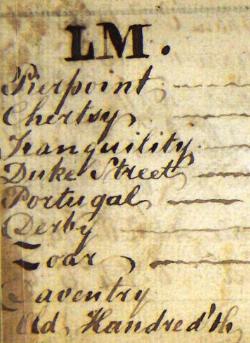 LM.
Pierpoint
Chertsy
Tranquility
Duke Street
Portugal
Derby
Zoar
Daventry
Old Handred'th